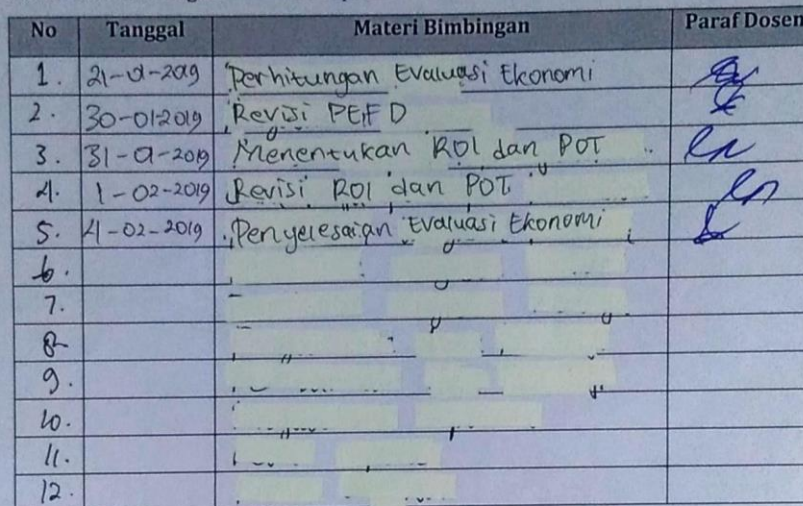 No Tanggal Materi Bimbingan Paraf Dosen
1. 21-01-2019 Perhitungan Evaluasi Ekonomi
2. 30-01-2019 Revisi PEFD
3. 31-01-2019 Menentukan ROI dan POT
4. 1-02-2019 Revisi ROI dan POT
5. 4-02-2019 Penyelesaian Evaluasi Ekonomi
6.
7.
8.
9.
10.
11.
12.